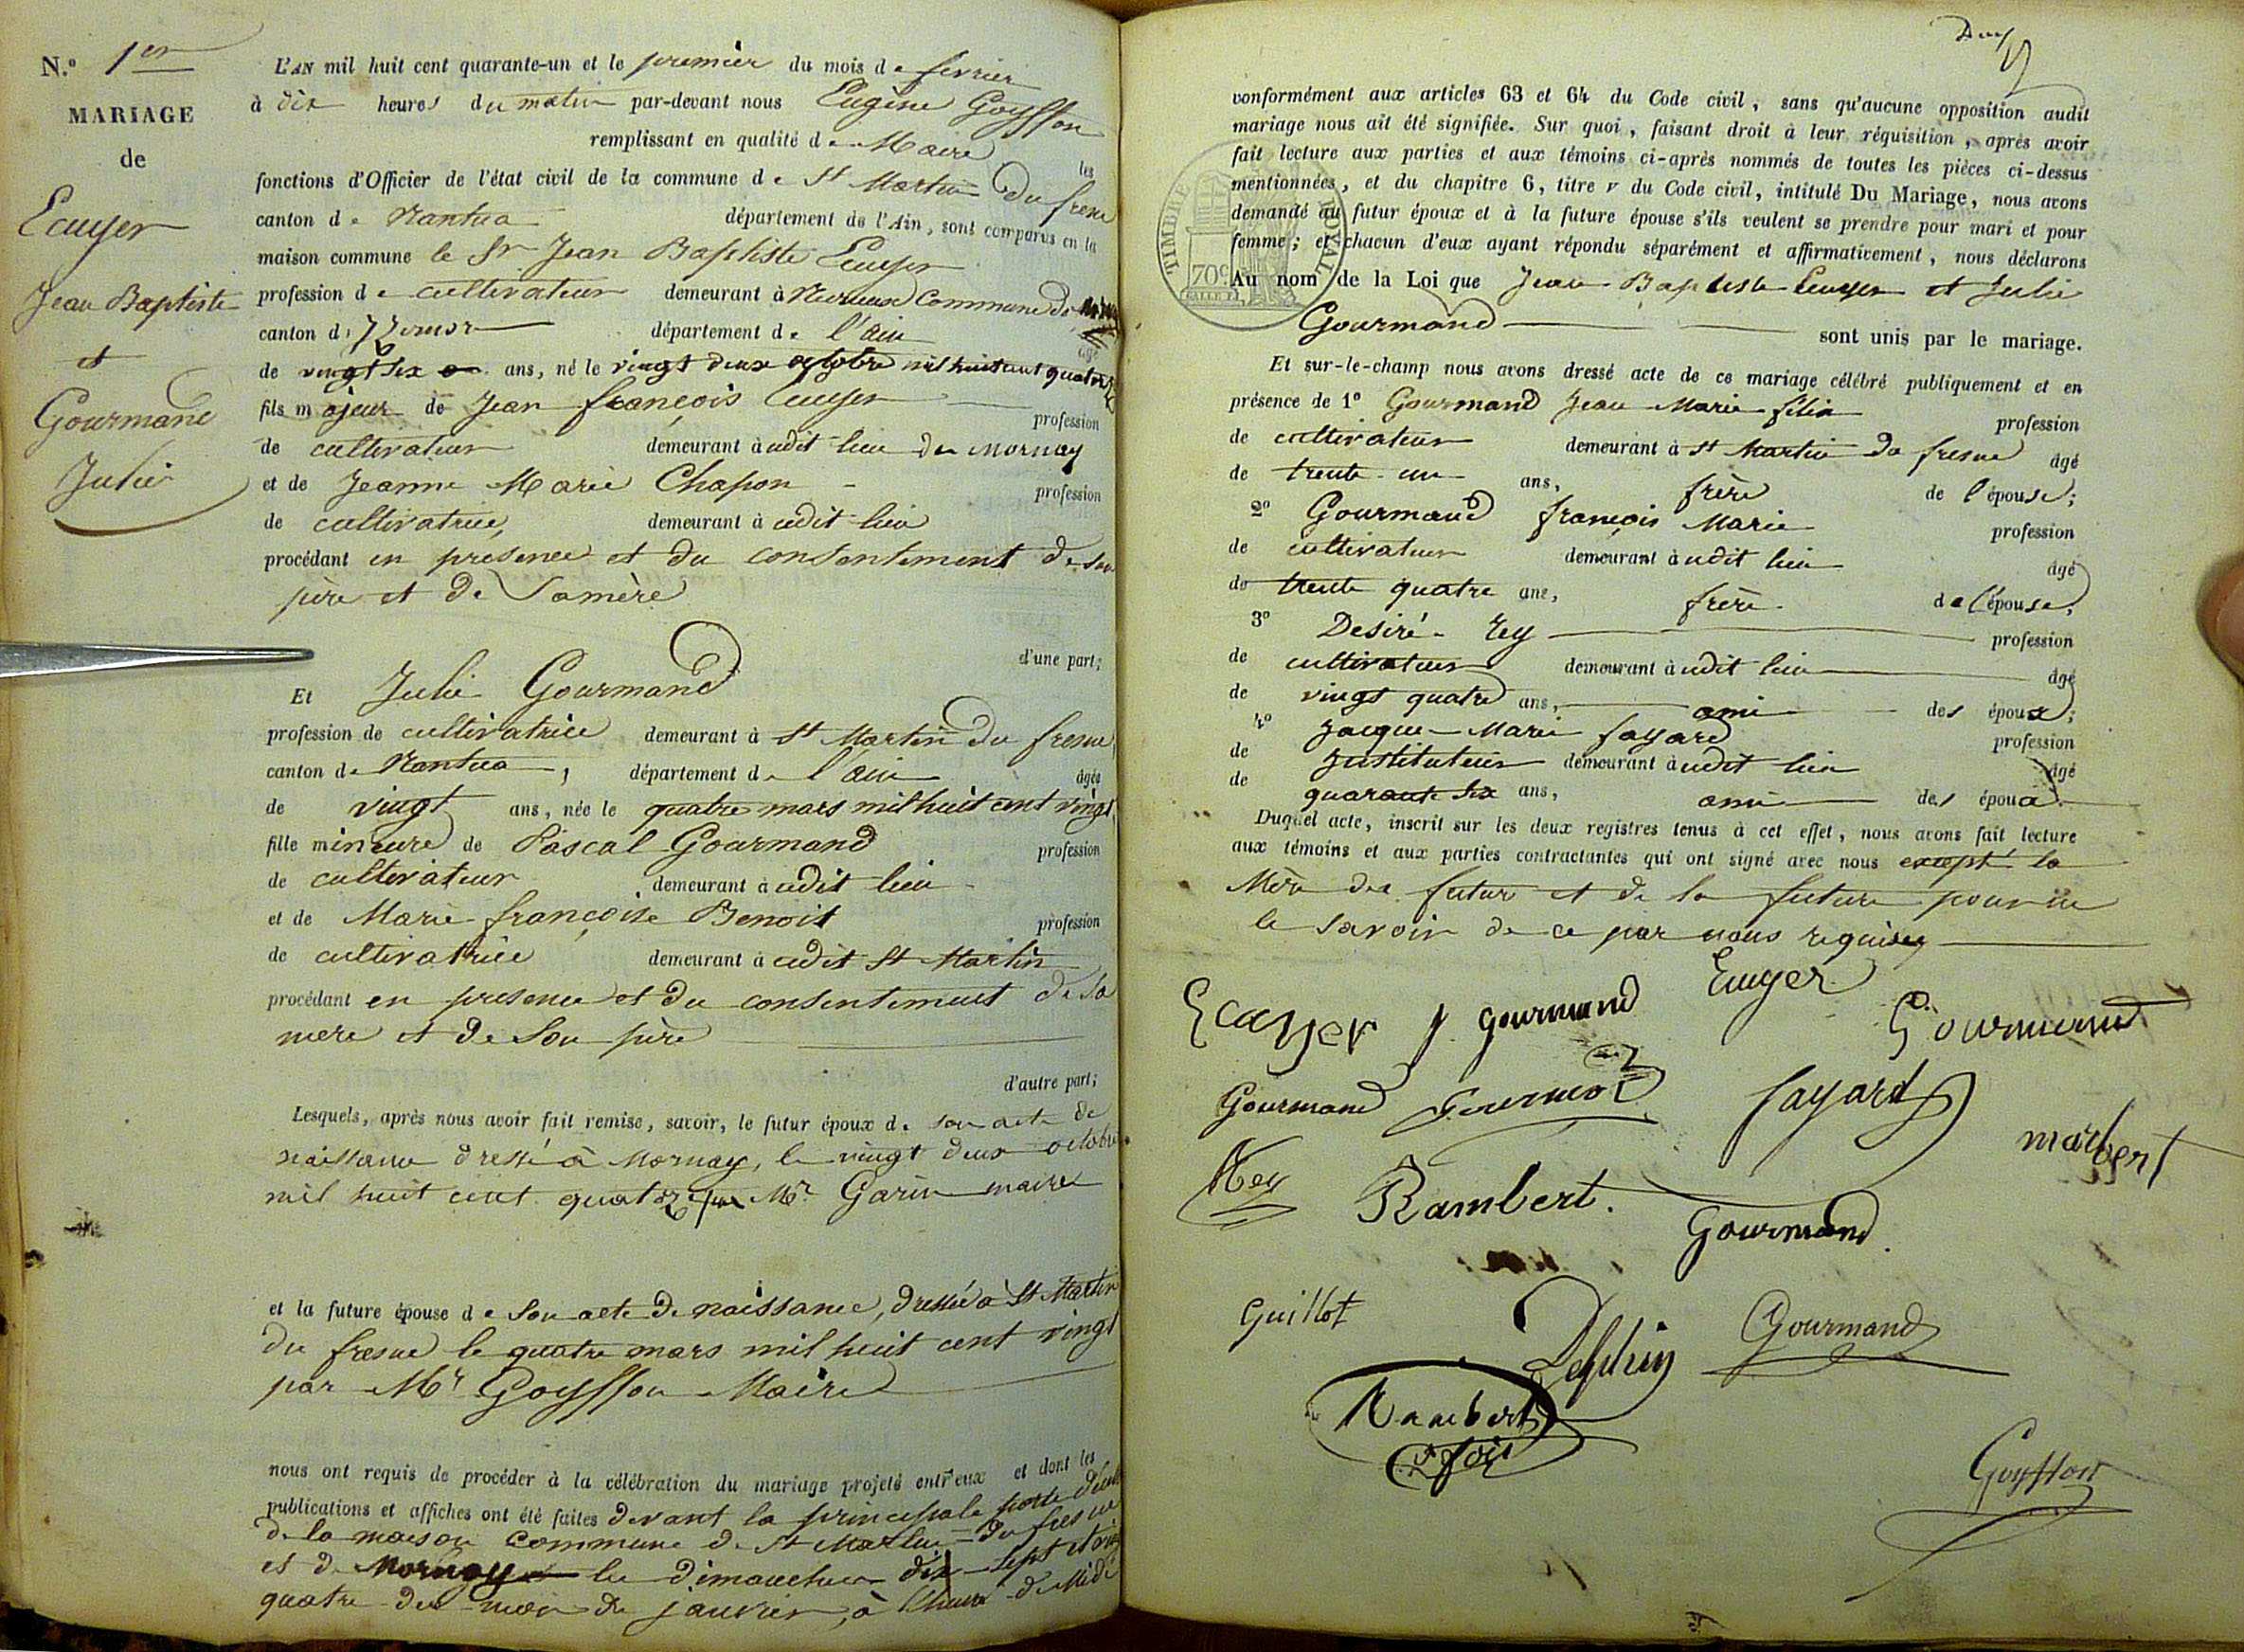 N.º 1er
MARIAGE
de
Ecuyer
Jean Baptiste
et
Gourmand
Julie
L'AN mil huit cent quarante-un et le premier du mois de fevrier
à dix heures du matin par-devant nous Eugène Goyffon
remplissant en qualité de Maire les
fonctions d'Officier de l'état civil de la commune de St Martin du fresne
canton de Nantua département de l'Ain, sont comparus en la
maison commune le Sr Jean Baptiste Ecuyer
profession de cultivateur demeurant à Commune de
canton d département de l'ain
âgé
de vingt six ans, né le vingt deux octobre mil huit cent quatorze
fils majeur de Jean françois Ecuyer profession
de cultivateur demeurant à udit lieu de Mornay
et de Jeanne Marie Chapon profession
de cultivatrice, demeurant à udit lieu
procédant en presence et du consentement de son
père et de sa mère
d'une part;
Et Julie Gourmand
profession de cultivatrice demeurant à St Martin du fresne
canton de Nantua, département de l'ain âgée
de vingt ans, née le quatre mars mil huit cent vingt
fille mineure de Pascal Gourmand profession
de cultivateur demeurant à udit lieu
et de Marie françoise Benoit profession
de cultivatrice demeurant à udit St Martin
procédant en presence et du consentement de sa
mere et de son père
d'autre part;
Lesquels, après nous avoir fait remise, savoir, le futur époux de son acte de
naissance dressé à Mornay, le vingt deux octobre
mil huit cent quatorze par Mr Garin maire
et la future épouse de son acte de naissance, dressé à St Martin
du fresne le quatre mars mil huit cent vingt
par Mr Goyffon Maire
nous ont requis de procéder à la célébration du mariage projeté entr'eux et dont les
publications et affiches ont été faites devant la principale porte d'entrée
de la maison commune de St Martin-du fresne
et de Mornay les dimanches dix-sept et vingt
quatre du mois de janvier, à l'heure de Midi
conformément aux articles 63 et 64 du Code civil, sans qu'aucune opposition audit
mariage nous ait été signifiée. Sur quoi, faisant droit à leur réquisition, après avoir
fait lecture aux parties et aux témoins ci-après nommés de toutes les pièces ci-dessus
mentionnées, et du chapitre 6, titre v du Code civil, intitulé Du Mariage, nous avons
demandé au futur époux et à la future épouse s'ils veulent se prendre pour mari et pour
femme; et chacun d'eux ayant répondu séparément et affirmativement, nous déclarons
Au nom de la Loi que Jean Baptiste Ecuyer et Julie
Gourmand sont unis par le mariage.
TIMBRE ROYAL
70c.
Et sur-le-champ nous avons dressé acte de ce mariage célébré publiquement et en
présence de 1º Gourmand Jean Marie félix profession
de cultivateur demeurant à St Martin du fresne âgé
de trente-un ans, frère de l'épouse;
2º Gourmand françois Marie profession
de cultivateur demeurant à udit lieu âgé
de trente quatre ans, frère de l'épouse;
3º Desiré Rey profession
de cultivateur demeurant à udit lieu âgé
de vingt quatre ans, ami des époux;
4º Jacques-Marie fayard profession
de Instituteur demeurant à udit lieu âgé
de quarante six ans, ami des époux.
Duquel acte, inscrit sur les deux registres tenus à cet effet, nous avons fait lecture
aux témoins et aux parties contractantes qui ont signé avec nous excepté la
Mère du futur et de la future pour ne
le savoir de ce par nous requises
Ecuyer J. gourmand Ecuyer Gourmand
Gourmand fayard marbert
Rey Rambert. Gourmand
Guillot Gourmand
Rambert
Goyffon